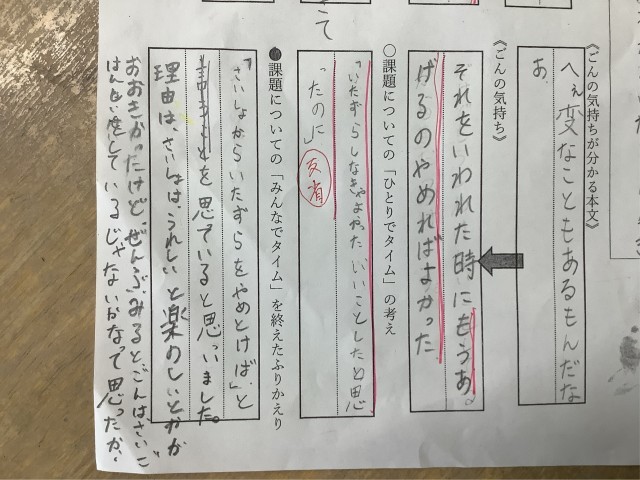 《ごんの気持ちが分かる本文》
へぇ変なこともあるもんだな
あ、
《ごんの気持ち》
それをいわれた時にもうあ。
げるのやめればよかった
○課題についての「ひとりでタイム」の考え
「いたずらしなきゃよかった いいことしたと思
ったのに」
反省
●課題についての「みんなでタイム」を終えたふりかえり
「さいしょからいたずらをやめとけば」と
を思ていると思っいました。
理由は、さいしょは、うれしいと楽のしいとかが
おおきかったけど、ぜんぶみると、ごんはさいご
はんせい
しているじゃないかなって思ったか、